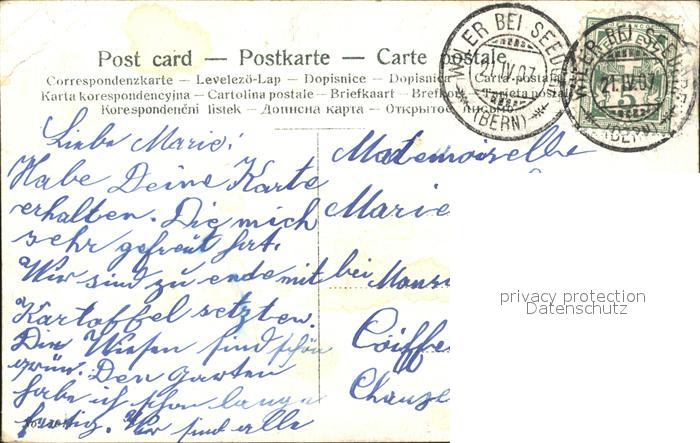 Post card — Postkarte — Carte postale
Correspondenzkarte – Levelező-Lap – Dopisnice – Dopisnica – Carta postala
Karta korespondencyjna – Cartolina postale – Briefkaart – Brefkort – Tarjeta postal
Korespondenční listek – Дописна карта – Открытое письмо
WILER BEI SEED
21.IV.07
(BERN)
WILER BEI SEED
21.IV.07
(BERN)
5
Liebe Marie!
Habe Deine Karte
erhalten. Die mich
sehr gefreut hat.
Wir sind zu ende mit
Kartoffel setzten.
Die Wiesen sind schön
grün. Den Garten
habe ich schon lange
fertig. Wir sind alle
Mademoiselle
Marie
bei Monsi
Coiffe
Chauss
privacy protection
Datenschutz